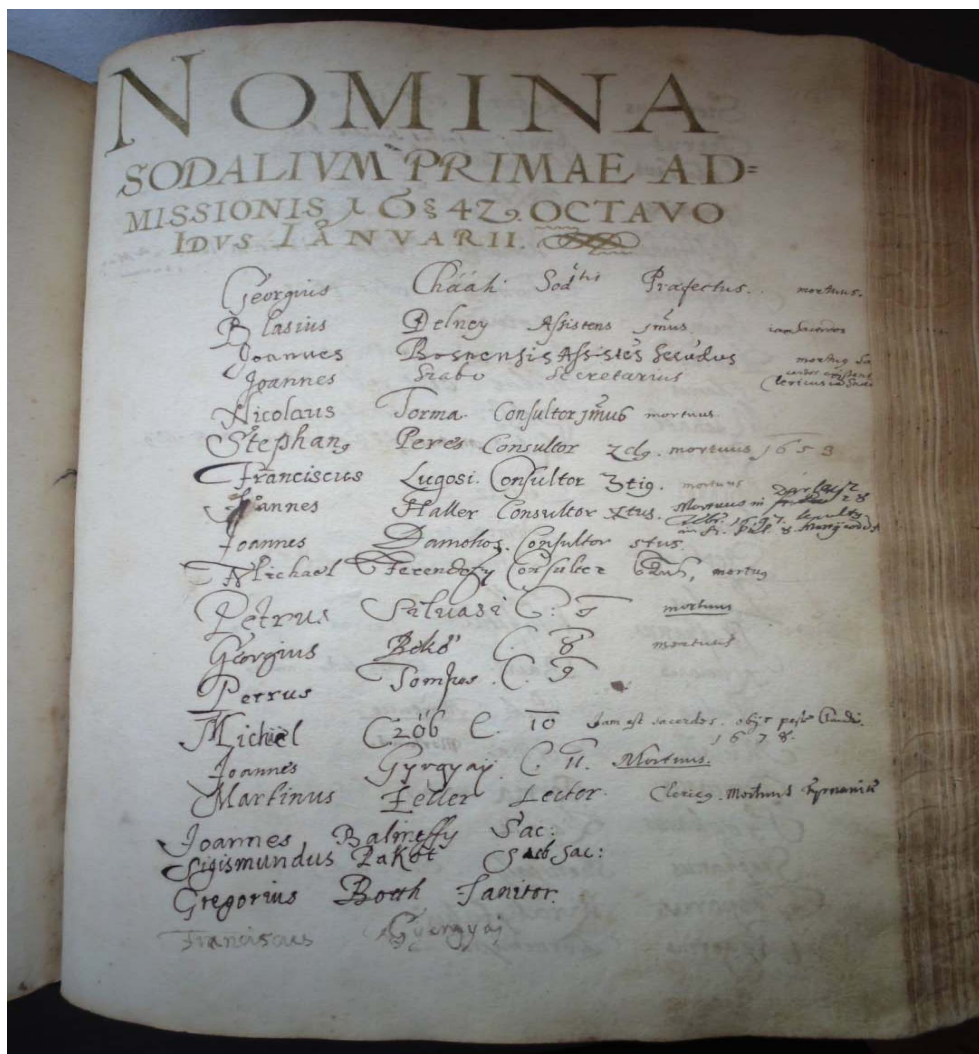 NOMINA
SODALIVM PRIMAE AD=
MISSIONIS 1642. OCTAVO
IDVS IANVARII.
Georgius Chááh Sod^tis Præfectus. mortuus.
Blasius Delney Assistens j^mus
Joannes Bosnensis Assistēs Secūdus
Joannes Szabo Secretarius
Nicolaus Torma Consultor j^mus mortuus
Stephan9 Peres Consultor 2d9. mortuus 1653
Franciscus Lugosi. Consultor 3ti9. mortuus
Joannes Haller Consultor 4tus. Mortuus in
Joannes Damokos. Consultor 5tus.
Michael Ferenczfy Consultor mortu9
Petrus Siluasi C: mortuus
Georgius C. 8 mortuus
Petrus Tompos. C. 9
Michael Czob C. 10 Jam est sacerdos. obijt peste
1678.
Joannes Gyrgyaÿ C. 11. Mortuus.
Martinus Feller Lector. Cleric9. Mortuus
Joannes Sac:
Sigismundus Pakot Sub Sac:
Gregorius Both Ianitor.
Franciscus Gyergyaj